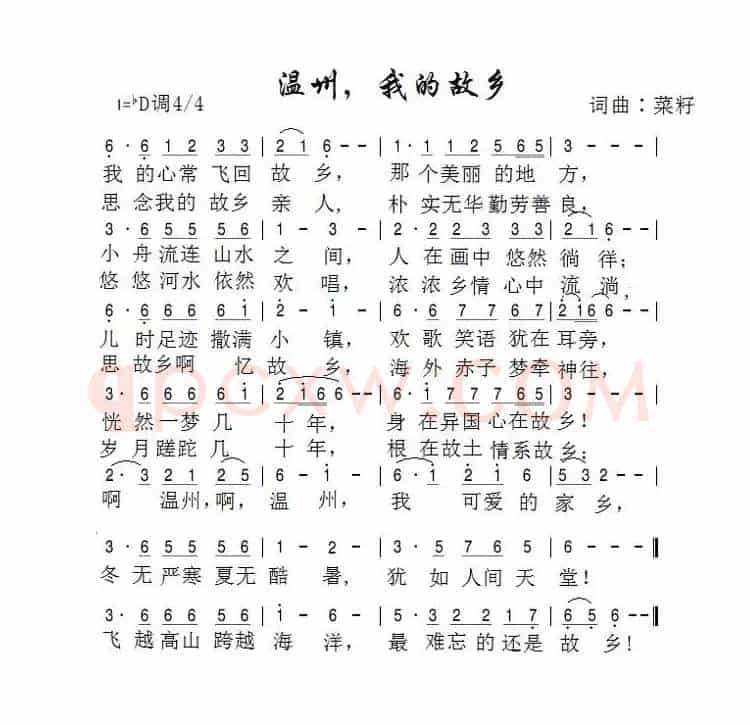 温州，我的故乡
1=♭D调4/4 词曲：菜籽
6·6 12 33 | 21 6-- | 1·1 12 5 65 | 3--- |
我的心常飞回故乡， 那个美丽的地方，
思念我的故乡亲人， 朴实无华勤劳善良，
3·6 55 65 | 1-3- | 2·2 23 32 | 2 21 6-- |
小舟流连山水之间， 人在画中悠然徜徉；
悠悠河水依然欢唱， 浓浓乡情心中流淌，
6·6 66 61 | 2-1- | 6·7 67 67 | 2166-- |
儿时足迹撒满小镇， 欢歌笑语犹在耳旁，
思故乡啊忆故乡， 海外赤子梦牵神往，
qpcxw.com
3·6 66 61 | 2166-- | 6·6 12 53 | 6--- |
恍然一梦几十年， 身在异国心在故乡！
岁月蹉跎几十年， 根在故土情系故乡；
2·3 21 25 | 6-1- | 6·1 21 6 | 532-- |
啊温州，啊，温州， 我可爱的家乡，
3·6 55 65 | 1-2- | 3·5 76 5 | 6--‖
冬无严寒夏无酷暑， 犹如人间天堂！
3·6 66 56 | 1-6- | 5·3 22 17 | 656--‖
飞越高山跨越海洋， 最难忘的还是故乡！